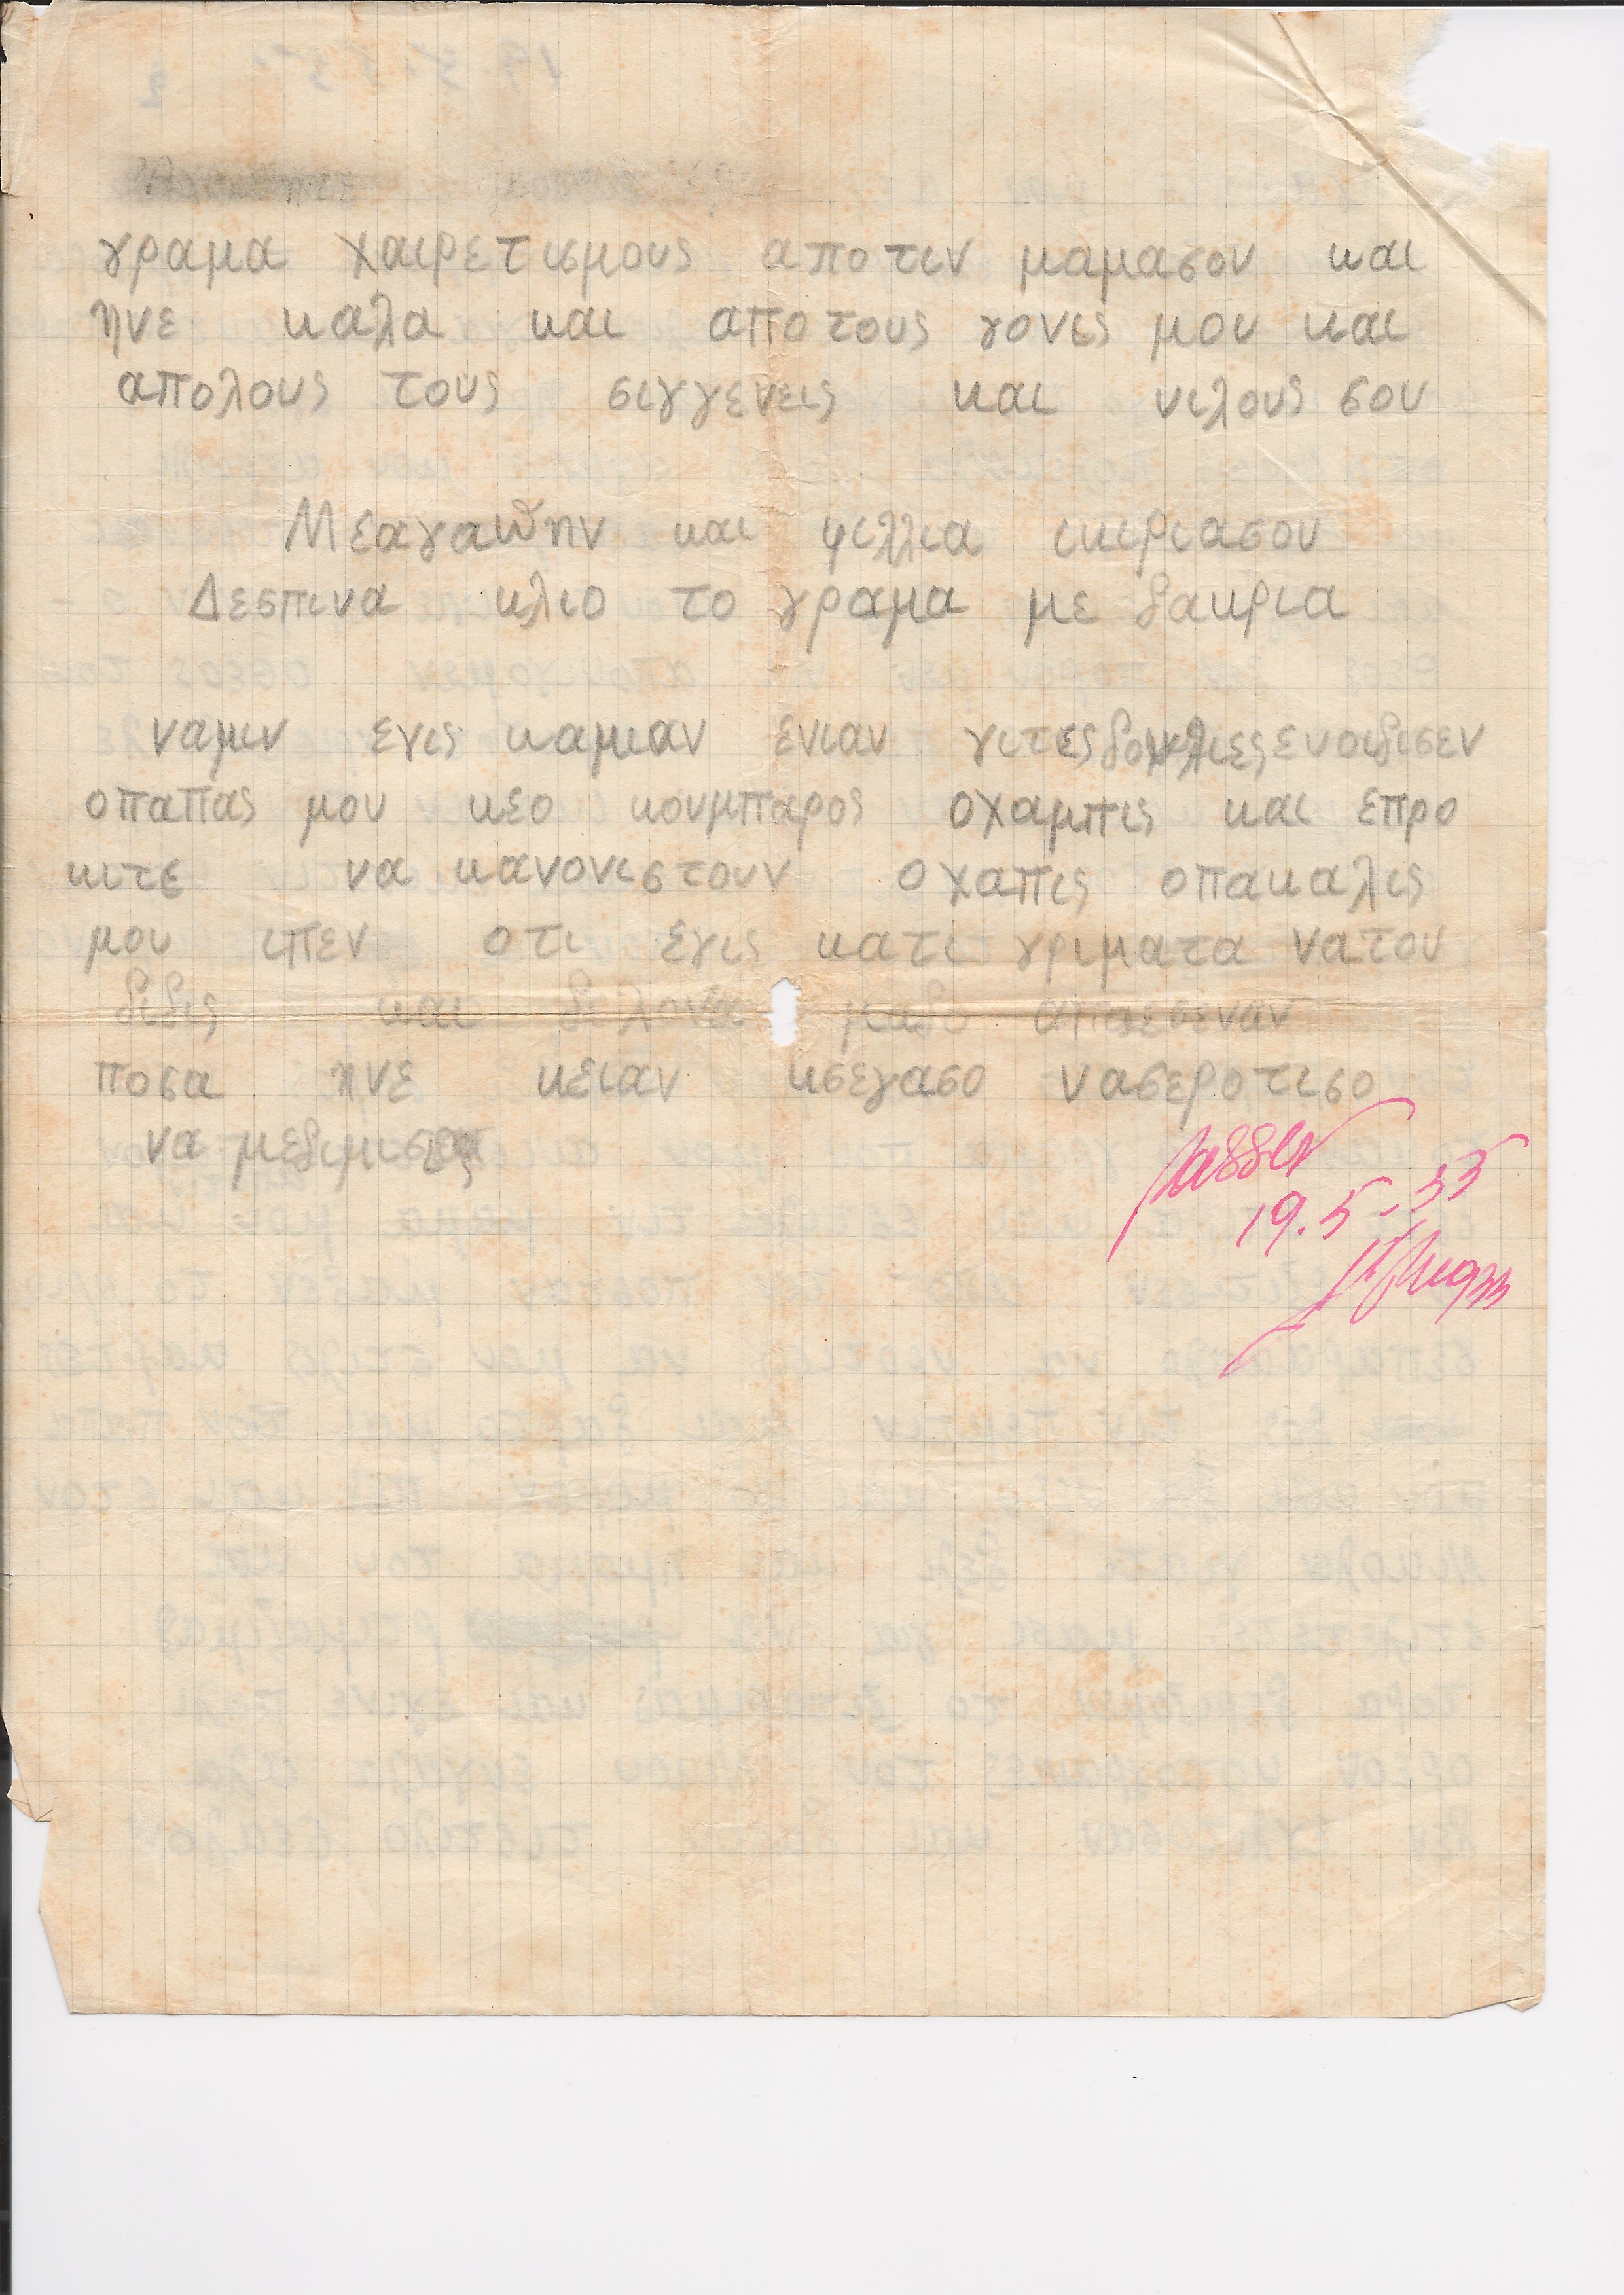 γραμα χαιρετισμους αποτιν μαμασου και
ηνε καλα και αποτους γονις μου και
απολους τους σιγγενεις και νιλους σου
Μεαγαπην και φιλλια ικιριασου
Δεσπινα κλιο το γραμα με δακρια
ναμιν εγις καμιαν ενιαν γιτες δουλιες ενοιδισεν
οπαπας μου κεο κουμπαρος οχαμπις και επρο
κιτε να κανονιστουν οχαπις οπακαλις
μου ιπεν οτι εγις κατι γριματα νατου
διδις και
ποσα ηνε κειαν κσεγασο νασεροτισο
να
19.5-55